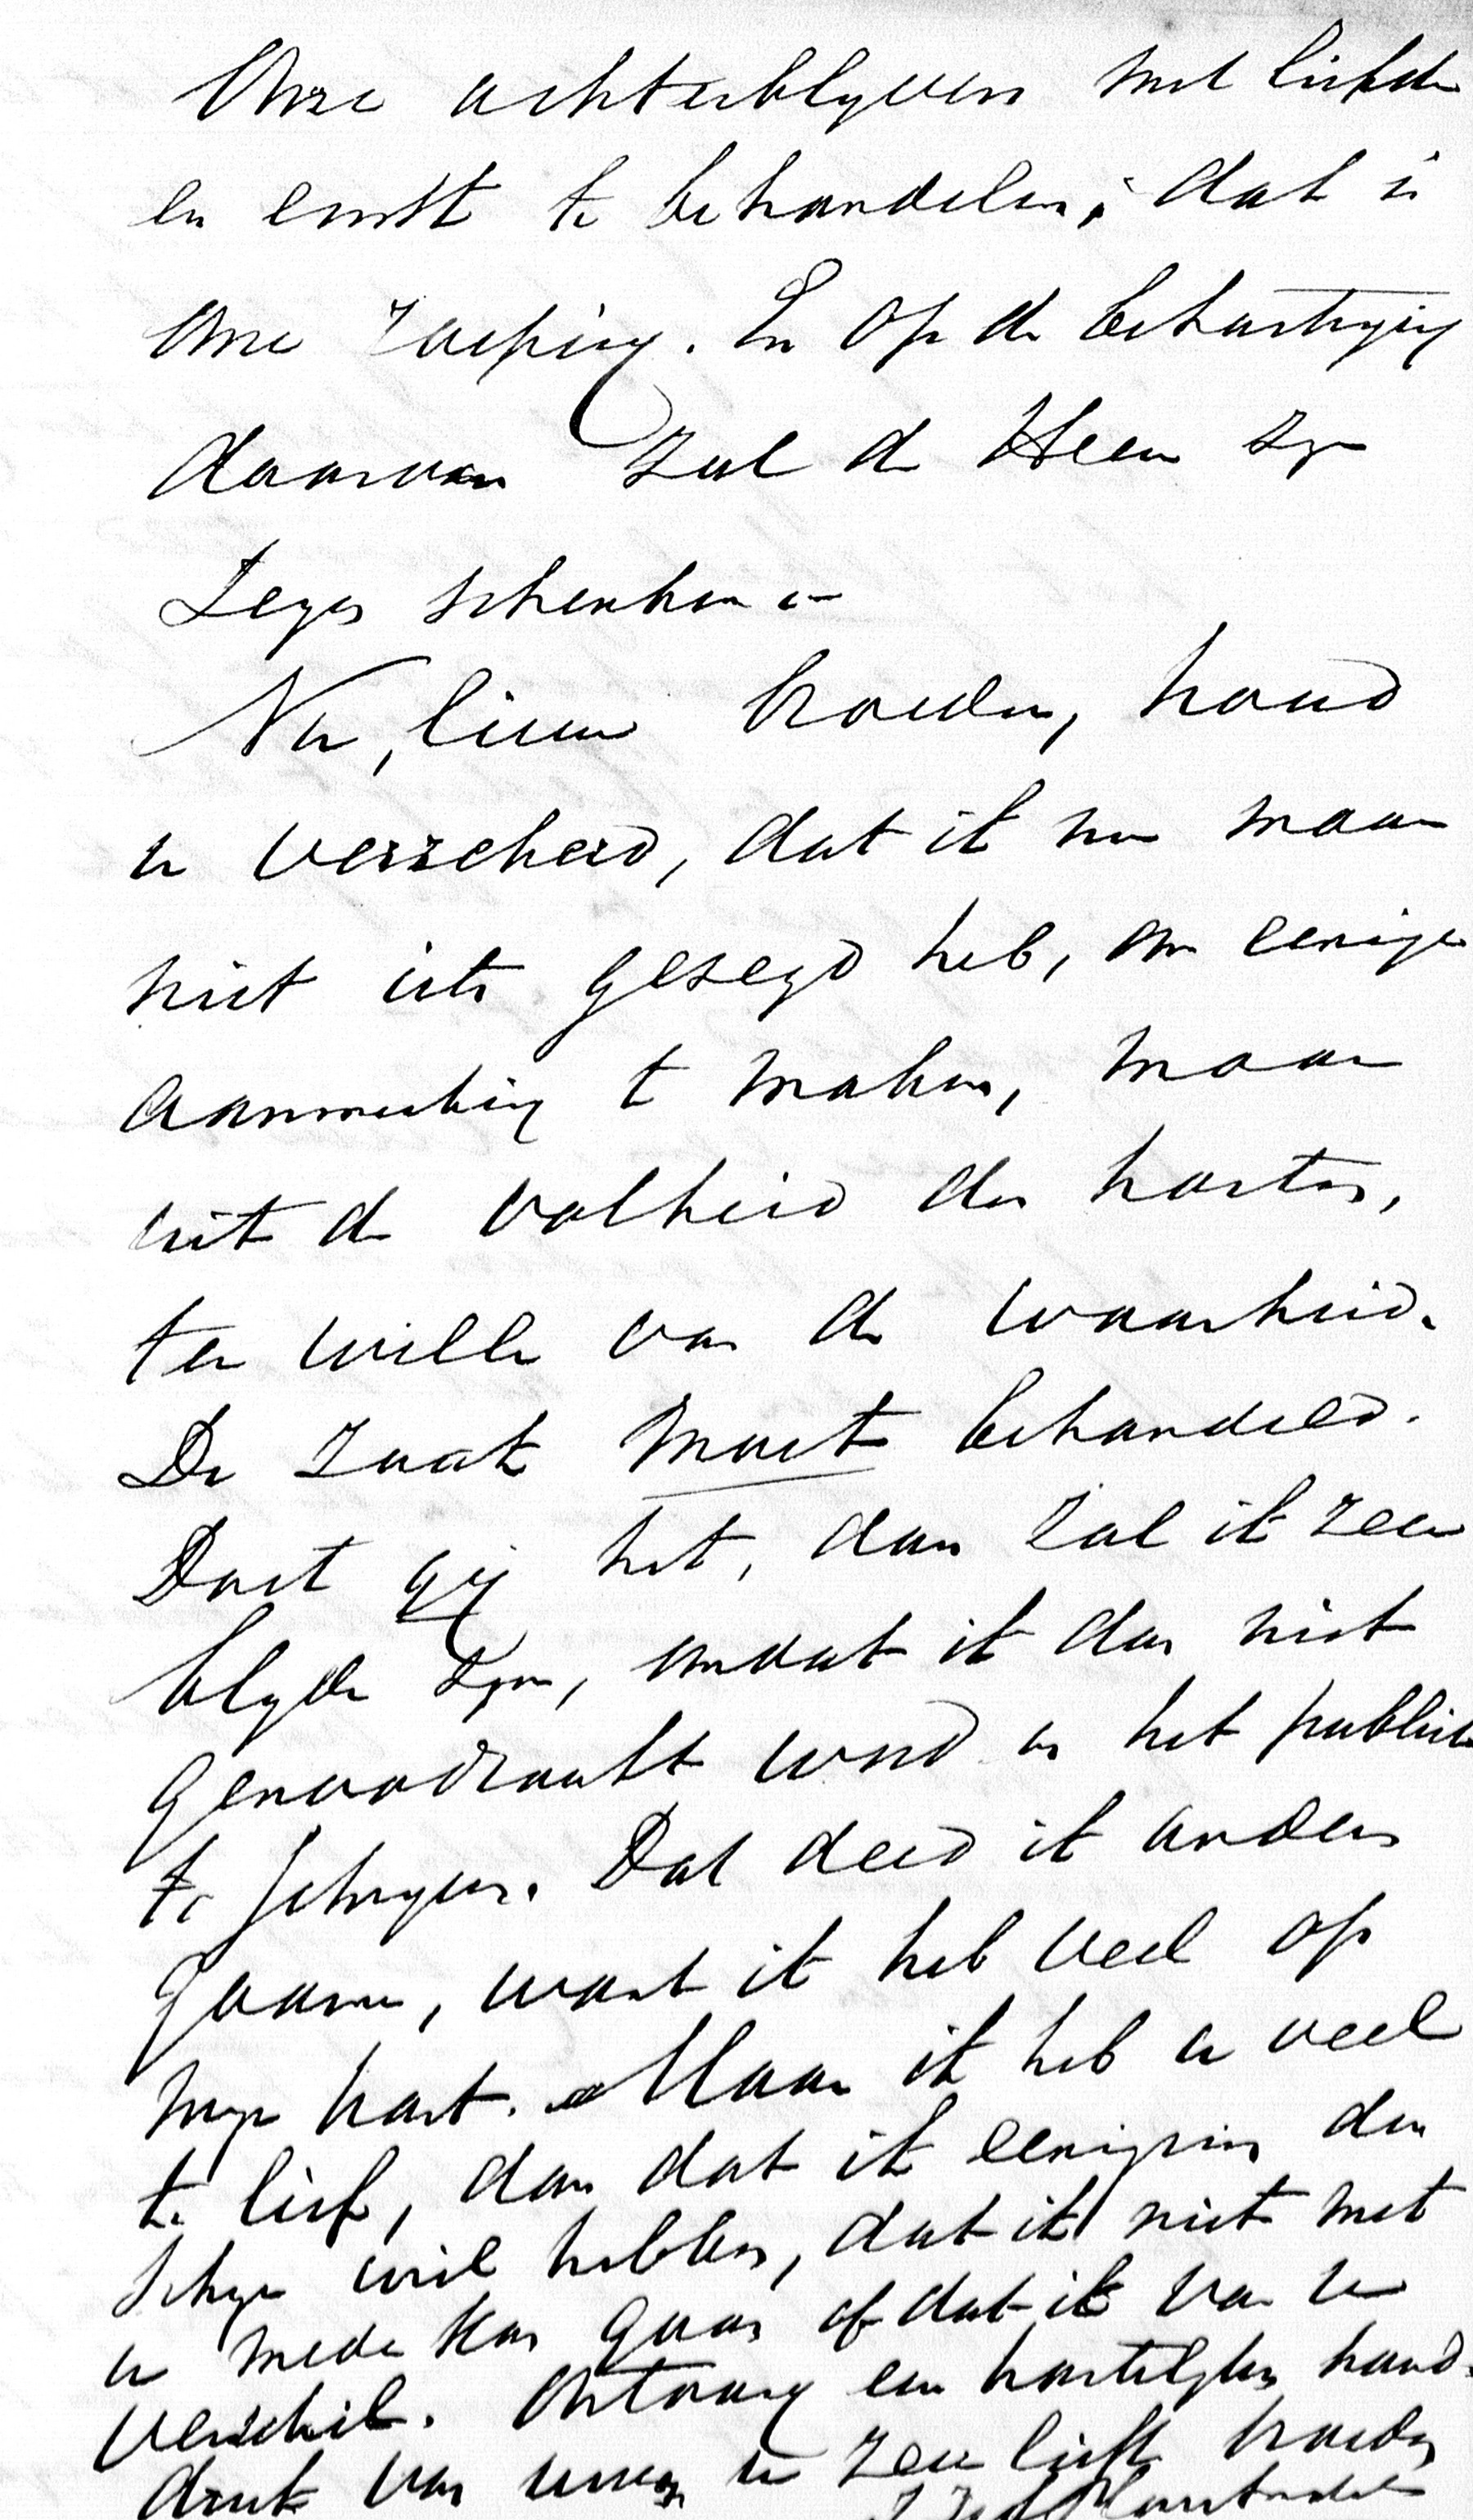 Onze achterblyvers met liefde
en ernst te behandelen; dat is
onze roeping. En op de behartiging
daarvan zal de Heer zyn
Zegen schenken.-
Nu, lieve broeder, houd
u verzekerd, dat ik nu maar
niet iets gezegd heb, om eenige
aanmerking te maken, maar
uit de volheid des harten,
ter wille van de waarheid.
De zaak moet behandeld.
Doet gij het, dan zal ik zeer
blyde zyn, omdat ik dan niet
genoodzaakt word in het publiek
te schryven. Dat deed ik anders
gaarne, want ik heb veel op
myn hart. Maar ik heb u veel
te lief, dan dat ik eenigzins den
schyn wil hebben, dat ik niet met
u mede kan gaan of dat ik van u
verschil. Ontvang een hartelyken hand-
druk van uwen u zeer lieft. broeder